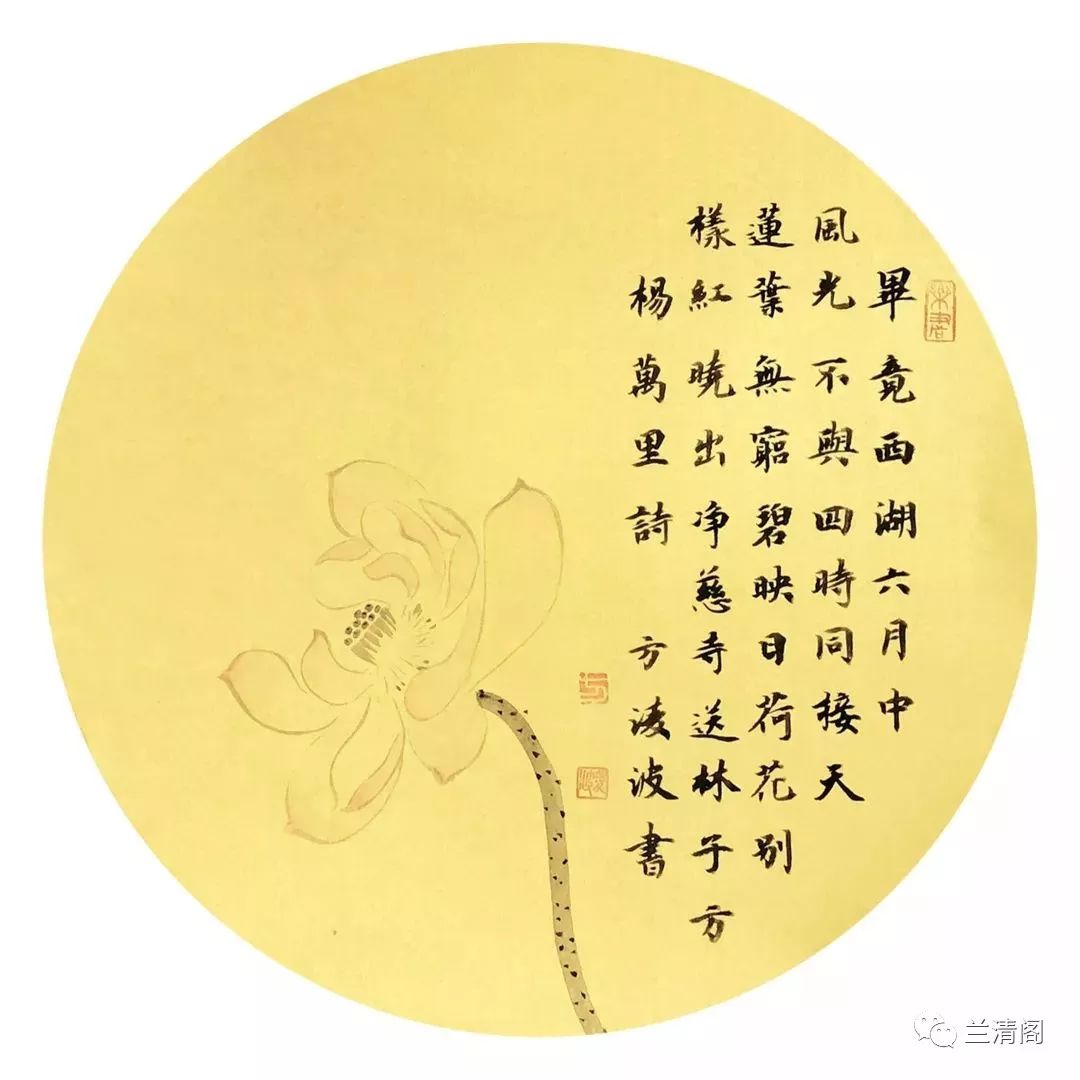 畢竟西湖六月中
風光不與四時同接天
蓮葉無窮碧映日荷花别
樣紅曉出净慈寺送林子方
楊萬里詩 方凌波書
兰清阁